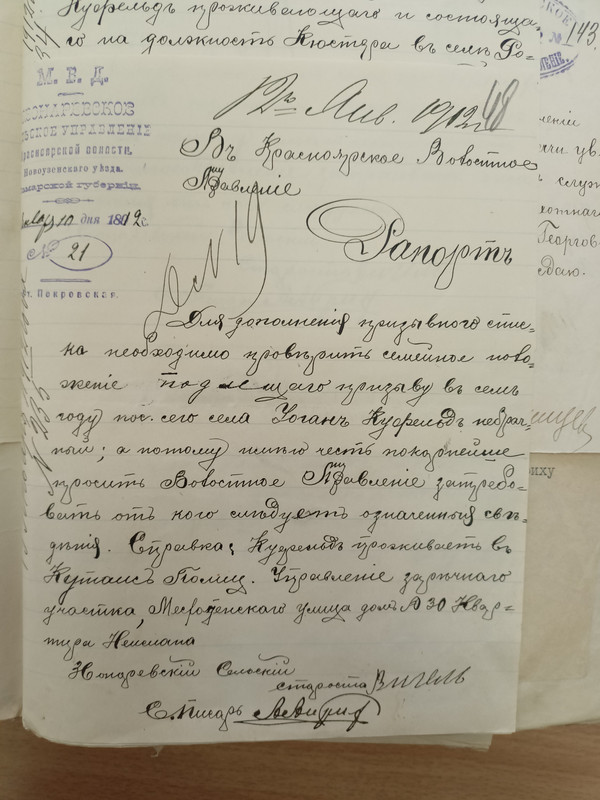 Куфельдъ проживающаго и состояща-
го на должность Кюстера въ селѣ Ро-
№ 143.
М. В. Д.
СЕЛЬСКОЕ УПРАВЛЕНІЕ
Красноярской волости,
Новоузенскаго уѣзда,
Самарской губерніи.
10 дня 1912 г.
№ 21
ст. Покровская.
12 Янв. 1912 г.
48
Въ Красноярское Волостное
Правленіе
Рапортъ
Для дополненія призывного спис-
ка необходимо провѣрить семейное поло-
женіе подлещаго призыву въ семъ
году пос. сего села Іоганъ Куфельдъ небрач-
ный; а потому имѣю честь покорнѣйше
просить Волостное Правленіе затребо-
вать отъ кого слѣдуетъ означенныя свѣ-
дѣнія. Справка; Куфельдъ проживаетъ въ
Кутаисъ Полиц. Управленіе зарѣчнаго
участка, улица домъ № 30 Квар-
тира Неймана
Сельскій
староста Вигель
С. Писарь